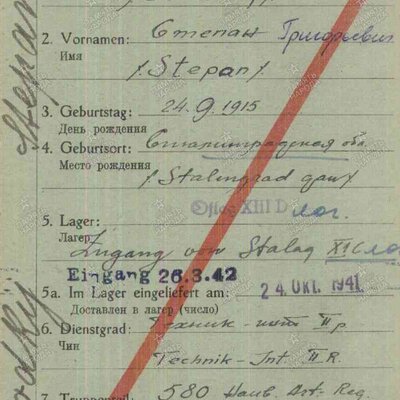 2. Vornamen: Степан Григорьевич
Имя
/Stepan/
3. Geburtstag: 24.9.1915
День рождения
4. Geburtsort: Сталинградская обл.
Место рождения
/Stalingrad gau/
Oflag XIII D лаг.
5. Lager:
Лагер
Zugang von Stalag XI C
Eingang 26.3.42
5a. Im Lager eingeliefert am: 24. Okt. 1941
Доставлен в лагер (число)
6. Dienstgrad: Техник-инт. II р
Чин
Technik-Int. II R.
7. Truppenteil: 580 Haub. Art. Reg.
Stepan